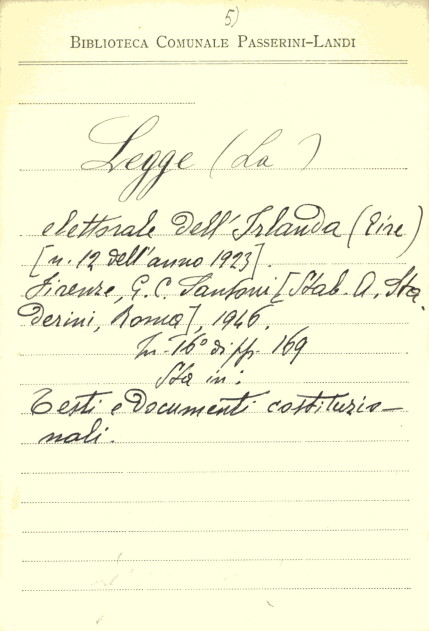 5)
BIBLIOTECA COMUNALE PASSERINI-LANDI
Legge (La)
elettorale dell'Irlanda (Eire)
[n. 12 dell'anno 1923].
Firenze, G. C. Sansoni [Stab. A. Sta
derini, Roma], 1946.
In-16° di pp. 169
Sta in:
Testi e Documenti costituzio-
nali.